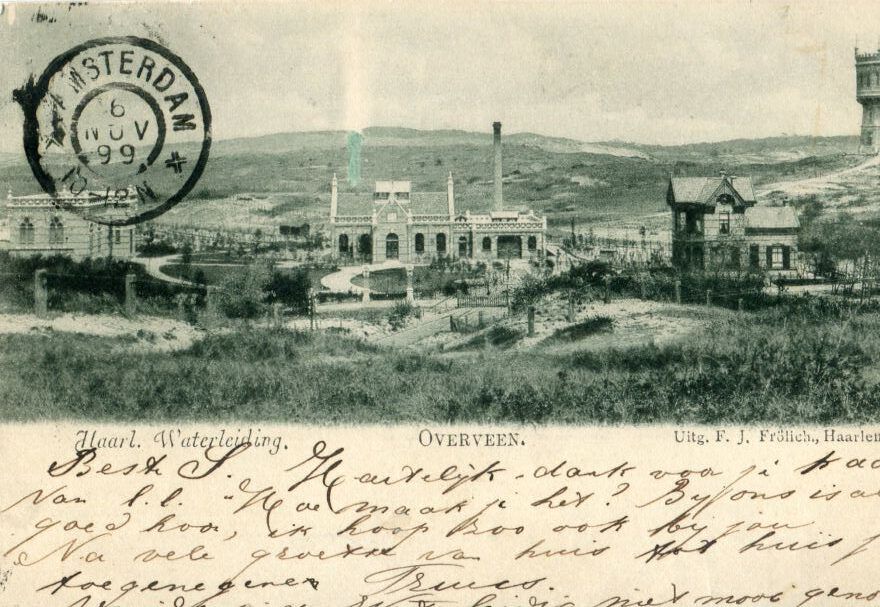 AMSTERDAM
6
NOV
99
10-12 N
Haarl. Waterleiding.
OVERVEEN.
Uitg. F. J. Frölich., Haarlem
Beste S. Hartelijk dank voor je
Van l.l. Hoe maak je het? Bij ons is
goed hoor, ik hoop zoo ook bij jou
Na vele groeten van huis tot huis
toegenegenen Truus.
niet mooi